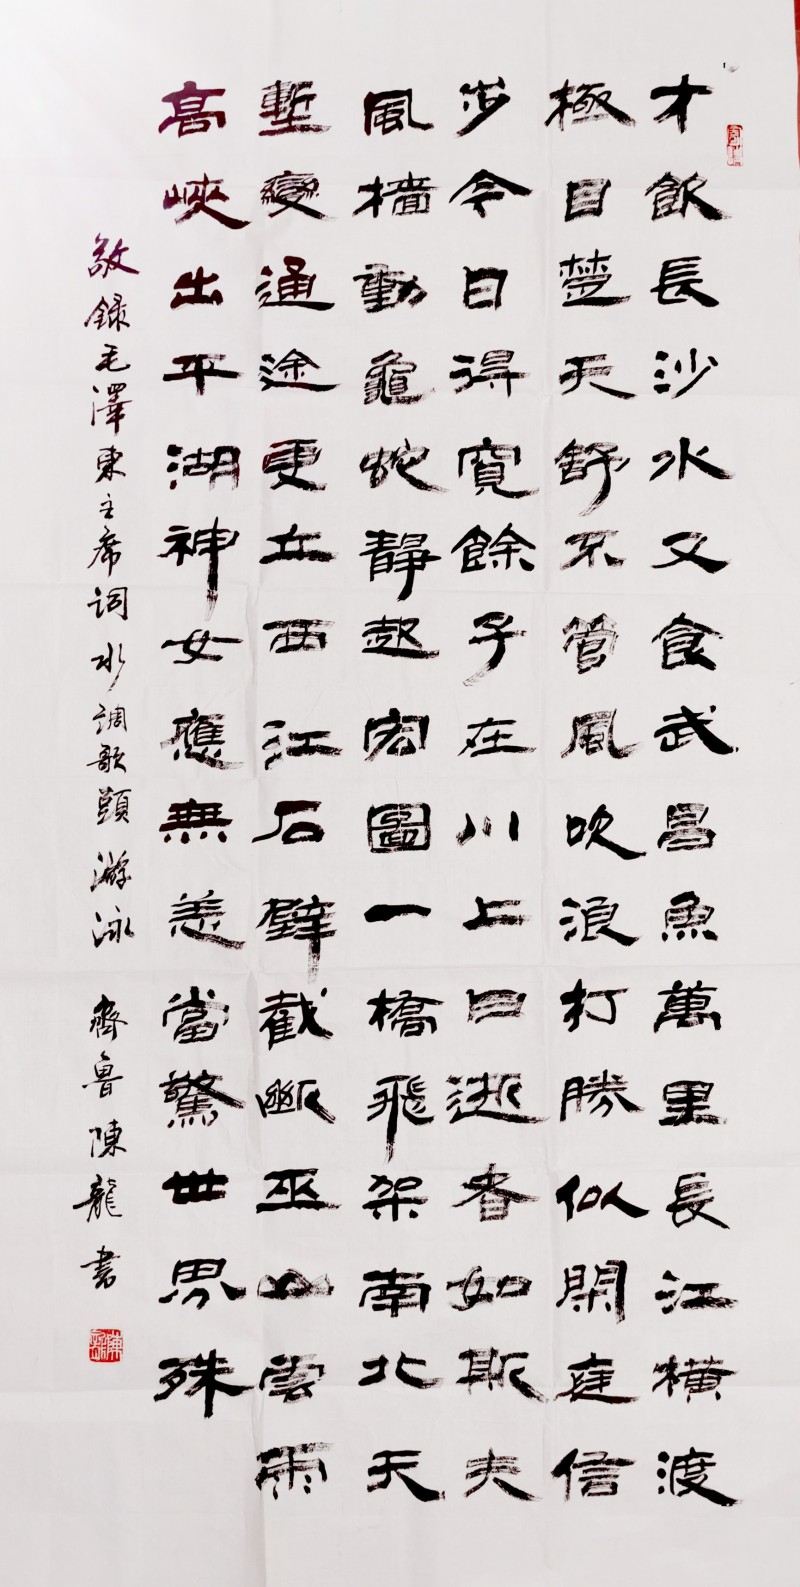 才飲長沙水又食武昌魚萬里長江橫渡
極目楚天舒不管風吹浪打勝似閑庭信
步今日得寬餘子在川上曰逝者如斯夫
風檣動龜蛇靜起宏圖一橋飛架南北天
塹變通途更立西江石壁截斷巫山雲雨
高峽出平湖神女應無恙當驚世界殊
敬錄毛澤東主席詞水調歌頭游泳 齊魯陳龍書